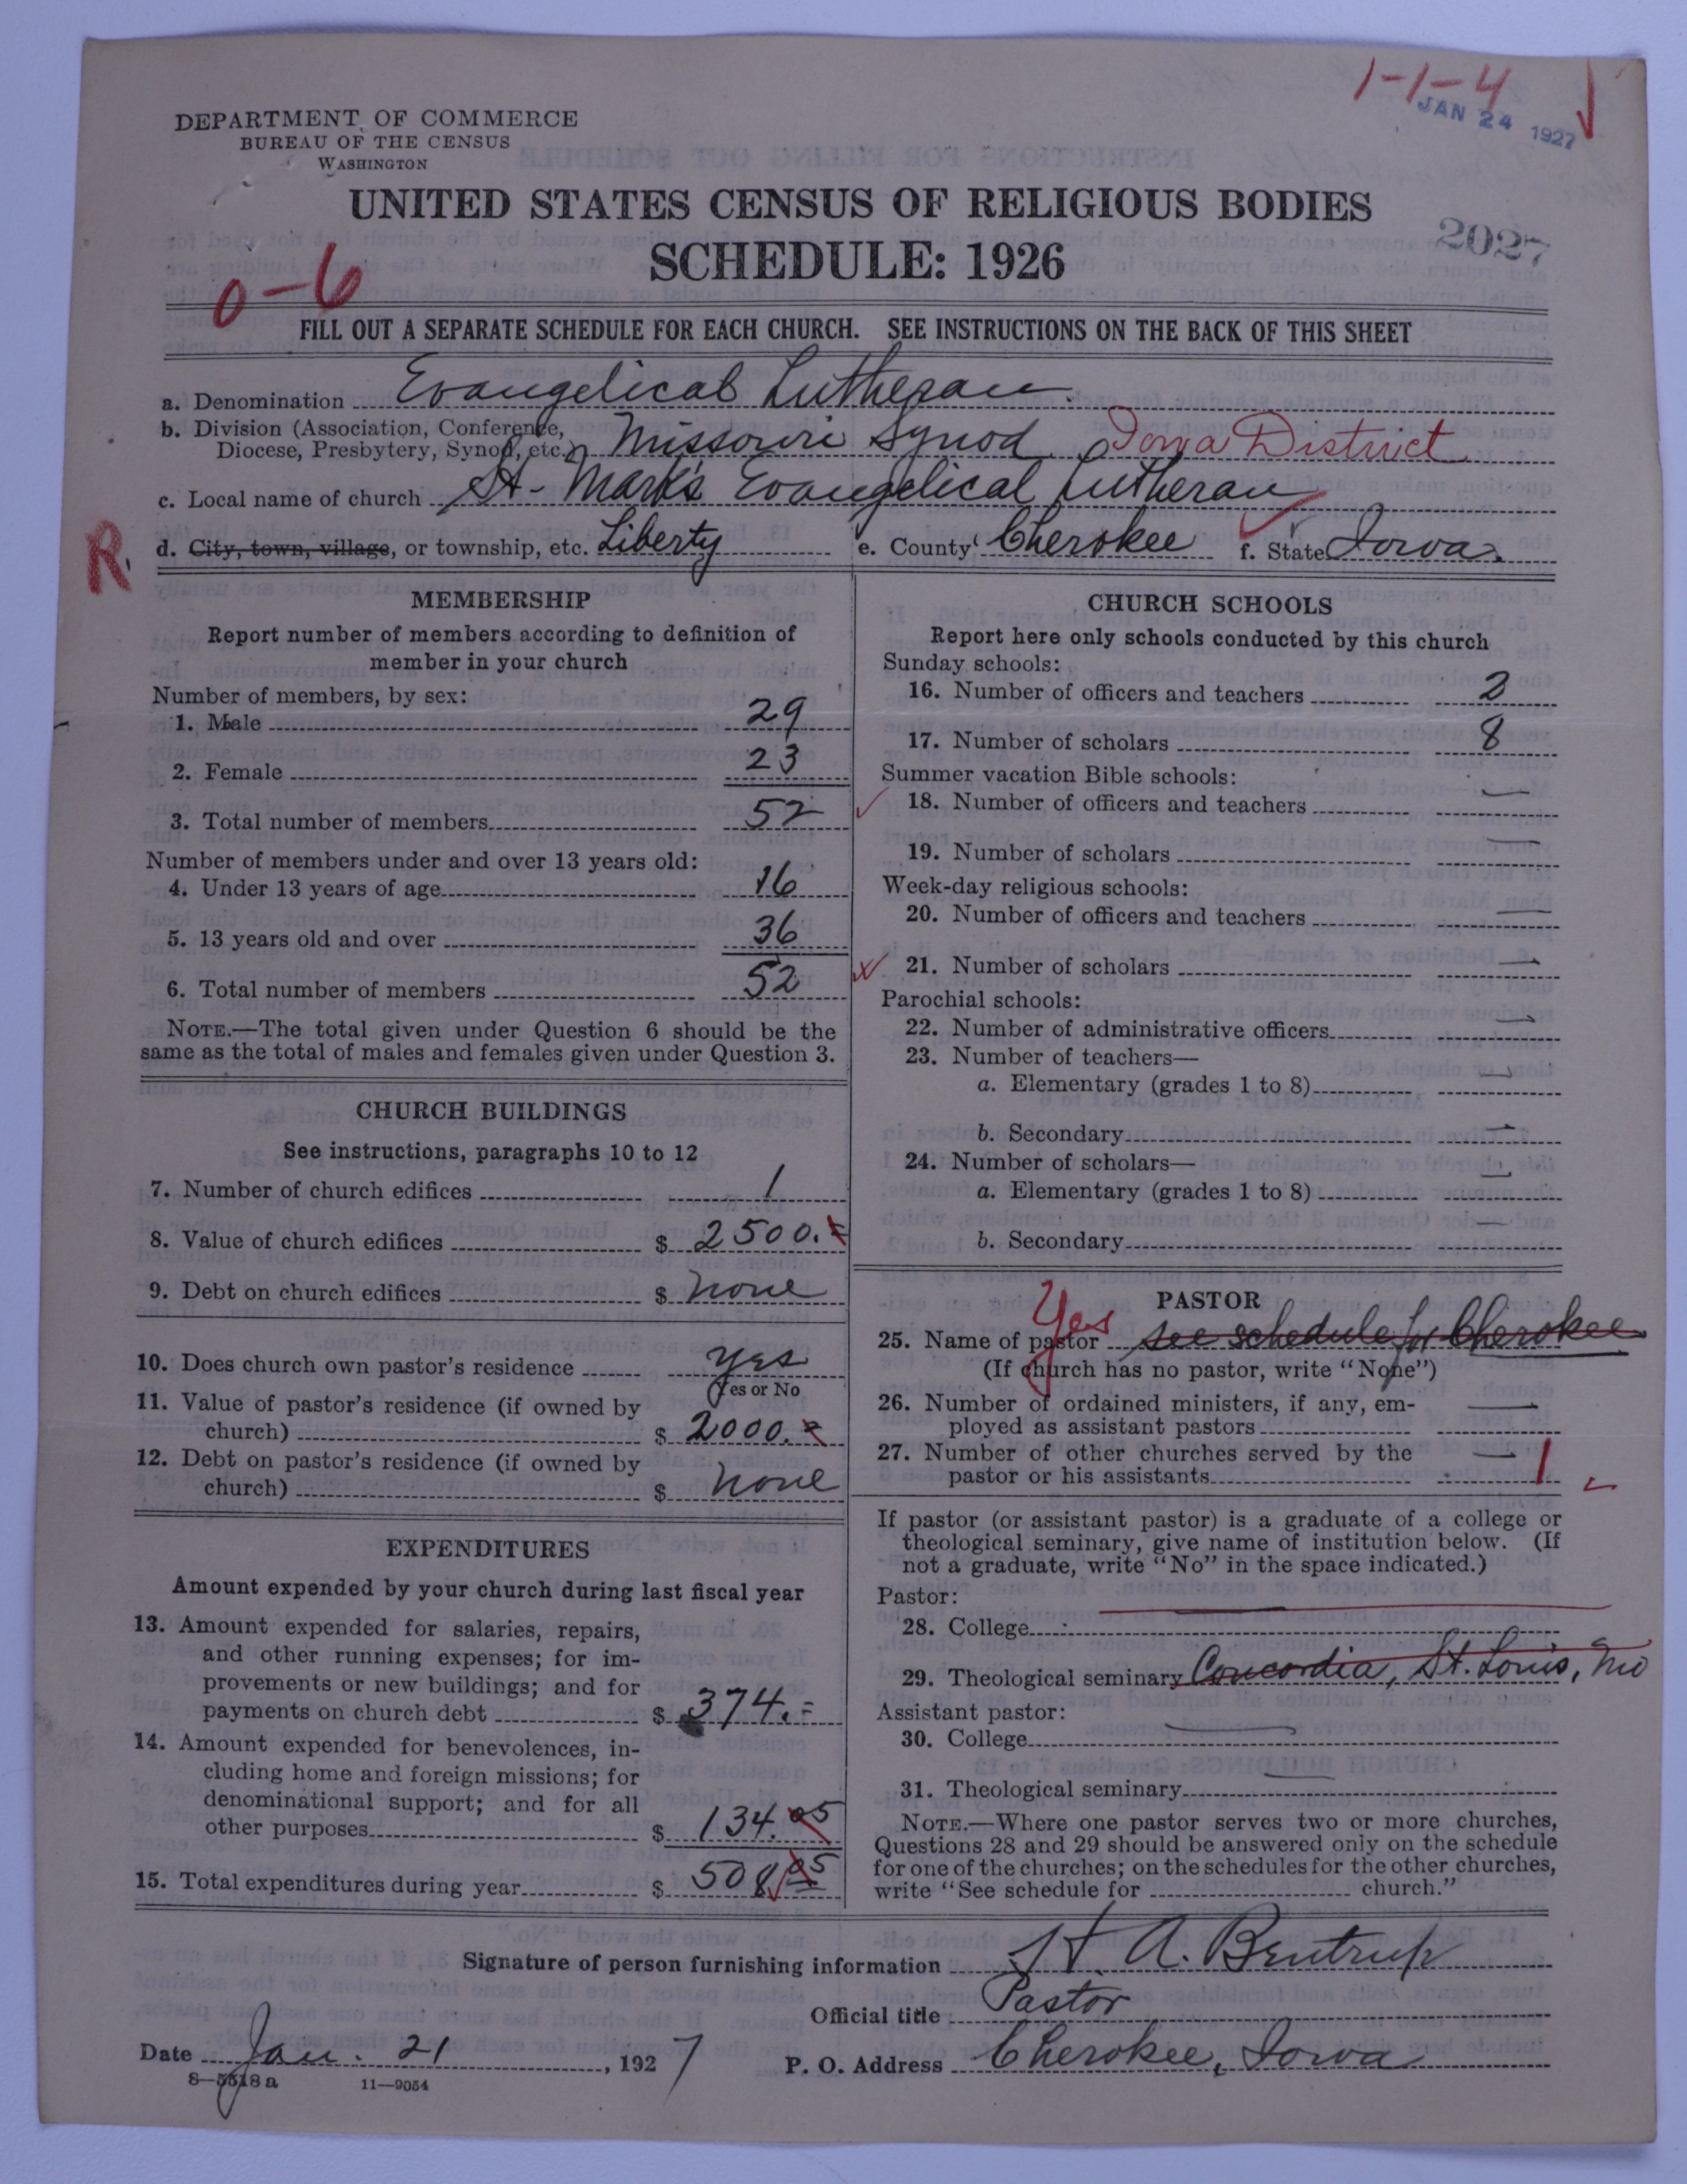 1-1-4
JAN 24 1927
DEPARTMENT OF COMMERCE
BUREAU OF THE CENSUS
WASHINGTON
UNITED STATES CENSUS OF RELIGIOUS BODIES
SCHEDULE: 1926
2027
0-6
FILL OUT A SEPARATE SCHEDULE FOR EACH CHURCH. SEE INSTRUCTIONS ON THE BACK OF THIS SHEET
a. Denomination Evangelical Lutheran
b. Division (Association, Conference,
Diocese, Presbytery, Synod, etc.) Missouri Synod Iowa District
c. Local name of church St. Mark's Evangelical Lutheran
R.
d. City, town, village, or township, etc. Liberty e. County Cherokee f. State Iowa.
MEMBERSHIP
Report number of members according to definition of
member in your church
Number of members, by sex:
1. Male 29
2. Female 23
3. Total number of members 52
Number of members under and over 13 years old:
4. Under 13 years of age 16
5. 13 years old and over 36
6. Total number of members 52
NOTE.—The total given under Question 6 should be the
same as the total of males and females given under Question 3.
CHURCH BUILDINGS
See instructions, paragraphs 10 to 12
7. Number of church edifices 1
8. Value of church edifices $ 2500.=
9. Debt on church edifices $ none
10. Does church own pastor's residence yes
Yes or No
11. Value of pastor's residence (if owned by
church) $ 2000.=
12. Debt on pastor's residence (if owned by
church) $ none
EXPENDITURES
Amount expended by your church during last fiscal year
13. Amount expended for salaries, repairs,
and other running expenses; for im-
provements or new buildings; and for
payments on church debt $ 374.=
14. Amount expended for benevolences, in-
cluding home and foreign missions; for
denominational support; and for all
other purposes $ 134.05
15. Total expenditures during year $ 508.05
CHURCH SCHOOLS
Report here only schools conducted by this church
Sunday schools:
16. Number of officers and teachers 2
17. Number of scholars 8
Summer vacation Bible schools:
18. Number of officers and teachers —
19. Number of scholars —
Week-day religious schools:
20. Number of officers and teachers —
21. Number of scholars —
Parochial schools:
22. Number of administrative officers —
23. Number of teachers—
a. Elementary (grades 1 to 8) —
b. Secondary —
24. Number of scholars—
a. Elementary (grades 1 to 8) —
b. Secondary —
PASTOR
Yes
25. Name of pastor see schedule for Cherokee
(If church has no pastor, write "None")
26. Number of ordained ministers, if any, em-
ployed as assistant pastors —
27. Number of other churches served by the
pastor or his assistants — 1
If pastor (or assistant pastor) is a graduate of a college or
theological seminary, give name of institution below. (If
not a graduate, write "No" in the space indicated.)
Pastor:
28. College —
29. Theological seminary Concordia, St. Louis, Mo
Assistant pastor:
30. College —
31. Theological seminary —
NOTE.—Where one pastor serves two or more churches,
Questions 28 and 29 should be answered only on the schedule
for one of the churches; on the schedules for the other churches,
write "See schedule for church."
Signature of person furnishing information H. A. Bentrup
Official title Pastor
Date Jan. 21, 1927 P. O. Address Cherokee, Iowa
8—5518 a 11—9054